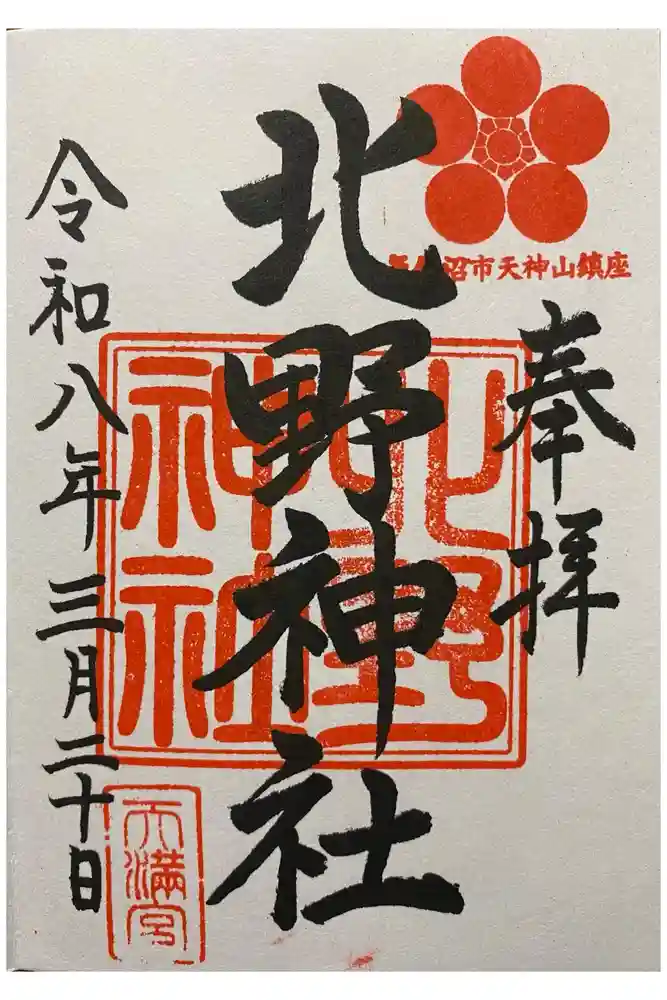 沼市天神山鎮座
奉拝
北野神社
北野神社
令和八年三月二十日
天満宮